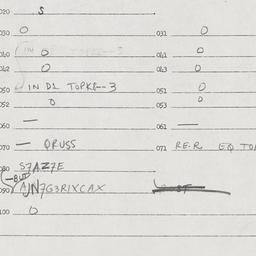 020 S
030 O 031 O
040 O 041 O
042 O 043 O
050 IN D1 TOPK8--3 051 O
052 O 053 O
060 — 061 —
070 — QRUSS 071 RE.R EQ TO
080 S7AZ7E
090 AJN7G3RIXCAX
100 O